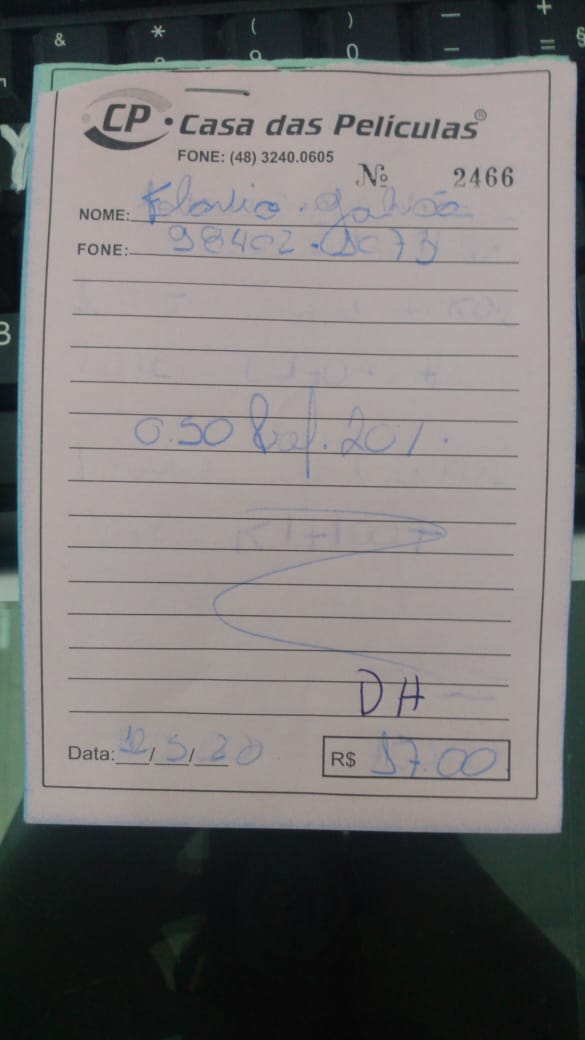 CP • Casa das Películas®
FONE: (48) 3240.0605
Nº 2466
NOME: Flavio. Galvão
FONE: 98402
0.50 20%.
DH
Data: 12/5/20 R$ 17.00